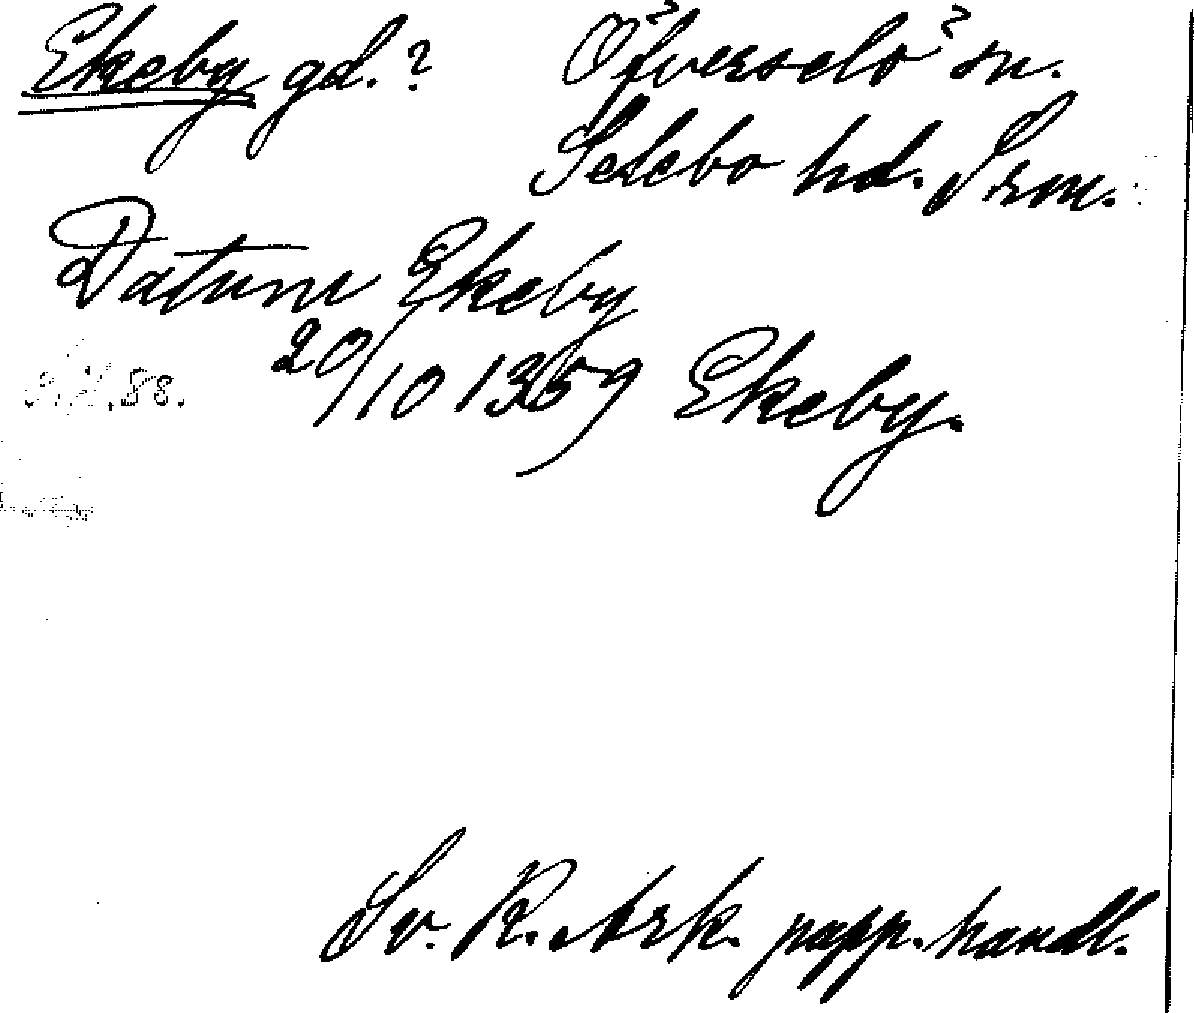 Ekeby gd.? Öfverselö? sn.
Selebo hd. Srm.
Datum Ekeby
20/10 1359 Ekeby.
Sv. R. Ark. papp. handl.